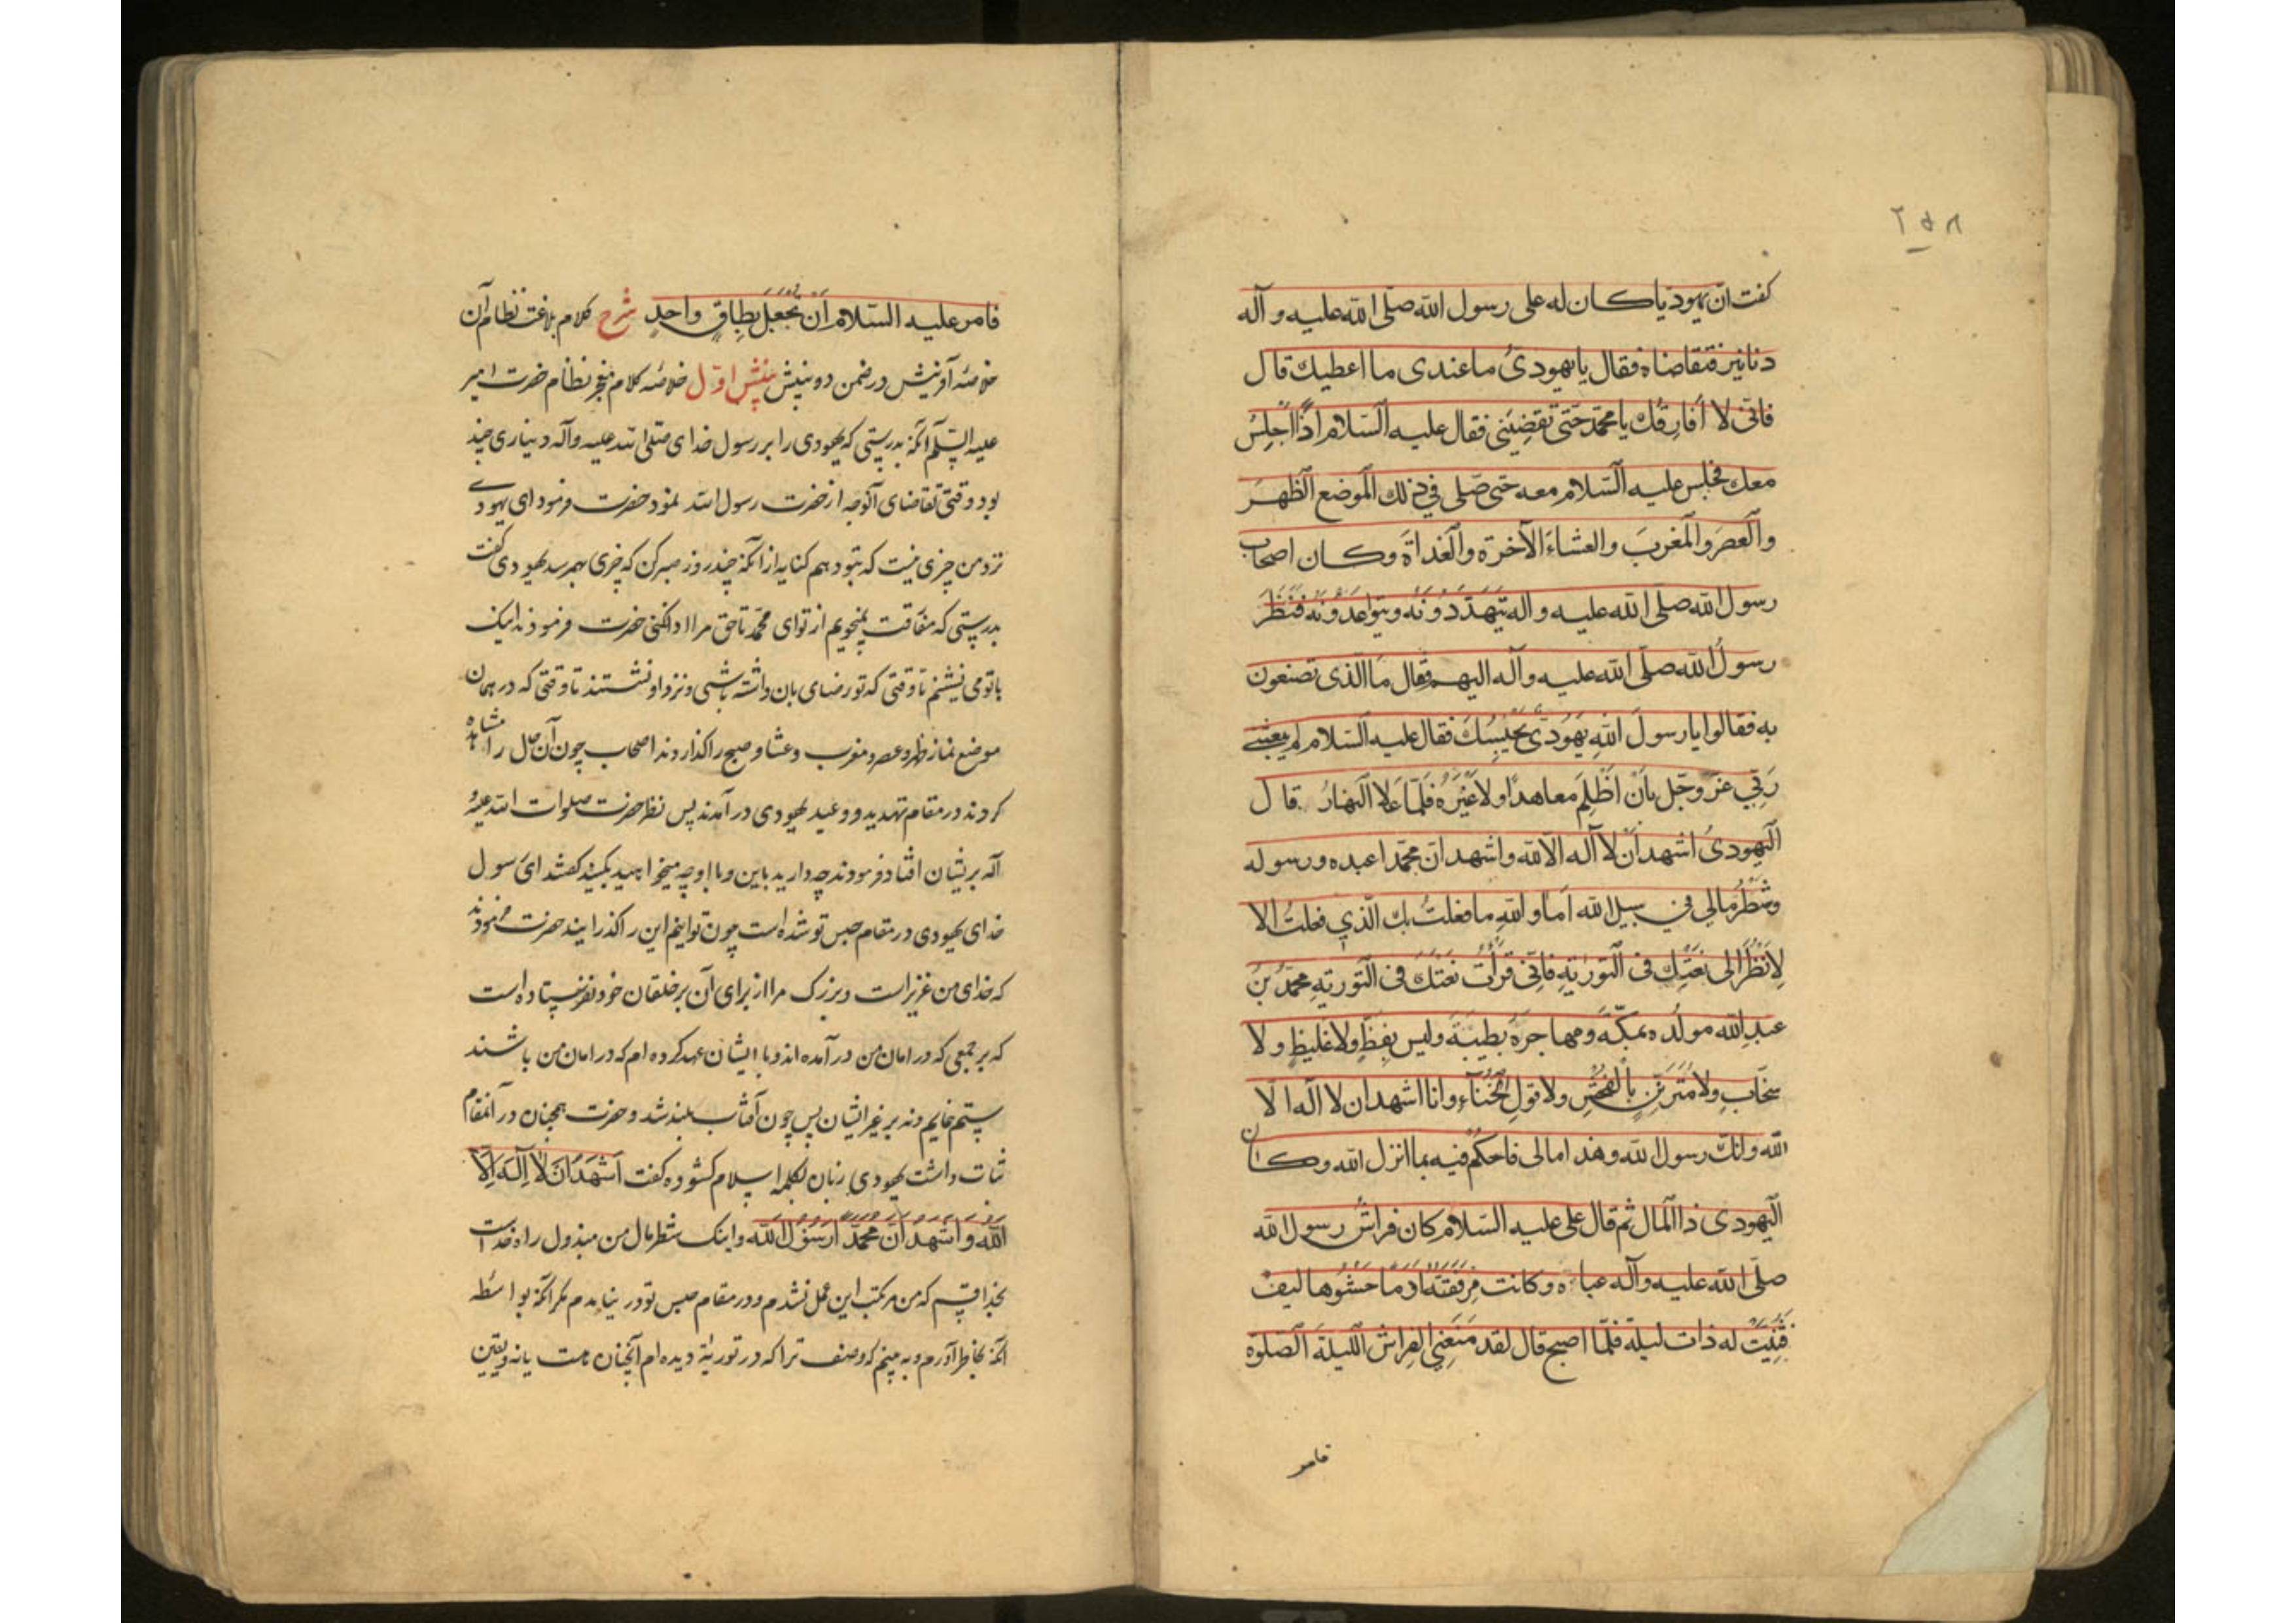 ۲۵۸
گفت انّ یهودیا کان له علی رسول الله صلّی الله علیه و آله
دنانیر فتقاضاه فقال یا یهودیُ ما عندی ما اعطیك قال
فانّی لا اُفارِقُك یا محمّد حتّی تقضِیَنی فقال علیه السّلام اذاً اجلِسُ
معك فجلس علیه السّلام معه حتی صلّی فی ذلك الموضع الظهرَ
والعصرَ والمغربَ والعشاءَ الآخرة والغداةَ وکان اصحاب
رسول الله صلی الله علیه و اله یتهدّدونه ویتواعدونه فنظر
رسولُ الله صلّی الله علیه وآله الیهم فقال ما الذی تصنعون
به فقالوا یا رسولَ اللهِ یهودیٌّ یحبِسُك فقال علیه السّلام لم یبعثنی
ربّی عزّ وجلّ بأن اظلِمَ معاهداً ولا غیرَه فلمّا علا النهارُ قال
الیهودیُ اشهد ان لا اله الّا الله واشهد انّ محمّدا عبده ورسوله
وشطرُ مالی فی سبیل الله امَا واللهِ ما فعلتُ بك الّذی فعلتُ الا
لِانظُرَ الی نعتِك فی التّوریةِ فانّی قرأتُ نعتَك فی التّوریةِ محمّدُ بنُ
عبدِ الله مولدُه بمکّةَ ومهاجرَهُ بطیبَةَ ولیس بفظٍّ ولا غلیظٍ ولا
سخّابٍ ولا متزیّنٍ بالفحشِ ولا قولِ الخناءِ وانا اشهد ان لا اله الّا
الله وانّك رسول الله وهذا مالی فاحکم فیه بما انزل الله وکان
الیهودی ذا المال ثم قال علی علیه السّلام کان فراش رسول الله
صلّی الله علیه وآله عباءه وکانت مِرفقتُه ادَماً حشوها لیف
فثُنِیَت له ذات لیلة فلمّا اصبح قال لقد مَنَعَنِی الفِراش اللیلةَ الصّلوة
فامر
فامر علیه السّلام ان یُجعَلَ بطاقٍ واحدٍ شرح کلام بلاغت نظام آن
خلاصهٔ آفرینش در ضمن دو بینش بینش اوّل خلاصهٔ کلام نظام حضرت امیر
علیه السّلام آنکه بدرستی که یهودی را بر رسول خدای صلّی الله علیه وآله دیناری چند
بود وقتی تقاضای آنوجه از حضرت رسول الله نمود حضرت فرمود ای یهودی
نزد من چیزی نیست که بتو دهم کنایه از آنکه چند روز صبر کن که چیزی بهم رسد یهودی گفت
بدرستی که مفاقت نمیجویم از تو ای محمّد تا حق مرا ادا نکنی حضرت فرمودند اینک
با تو می نشینم تا وقتی که تو رضای بان داشته باشی و نزد او نشستند تا وقتی که در همان
موضع نماز ظهر و عصر و مغرب و عشا و صبح را گذاردند اصحاب چون آن حال را مشاهده
کردند در مقام تهدید و وعید یهودی در آمدند پس نظر حضرت صلوات الله علیه و
آله بر ایشان افتاد فرمودند چه دارید باین و با او چه میخواهید بکنید گفتند ای رسول
خدای یهودی در مقام حبس تو شده است چون توانیم این را گذرانید حضرت فرمودند
که خدای من عزیز است و بزرگ مرا از برای آن بر خلقان خود نفرستاده است
که بر جمعی که در امان من در آمده اند و با ایشان عهد کرده ام که در امان من باشند
ستم نمایم و نه بر غیر ایشان پس چون آفتاب بلند شد و حضرت همچنان در آنمقام
ثبات داشت یهودی زبان بکلمه اسلام گشوده گفت اشهد ان لا اله الّا
الله و اشهد انّ محمّدا رسول الله و اینک شطر مال من مبذول راه خداست
بخدا قسم که من مرتکب این عمل نشدم و در مقام حبس تو در نیامدم مگر آنکه بواسطه
آنکه بخاطر آورم و به بینم که وصف ترا که در توریة دیده ام آنچنان هست یا نه و یقین